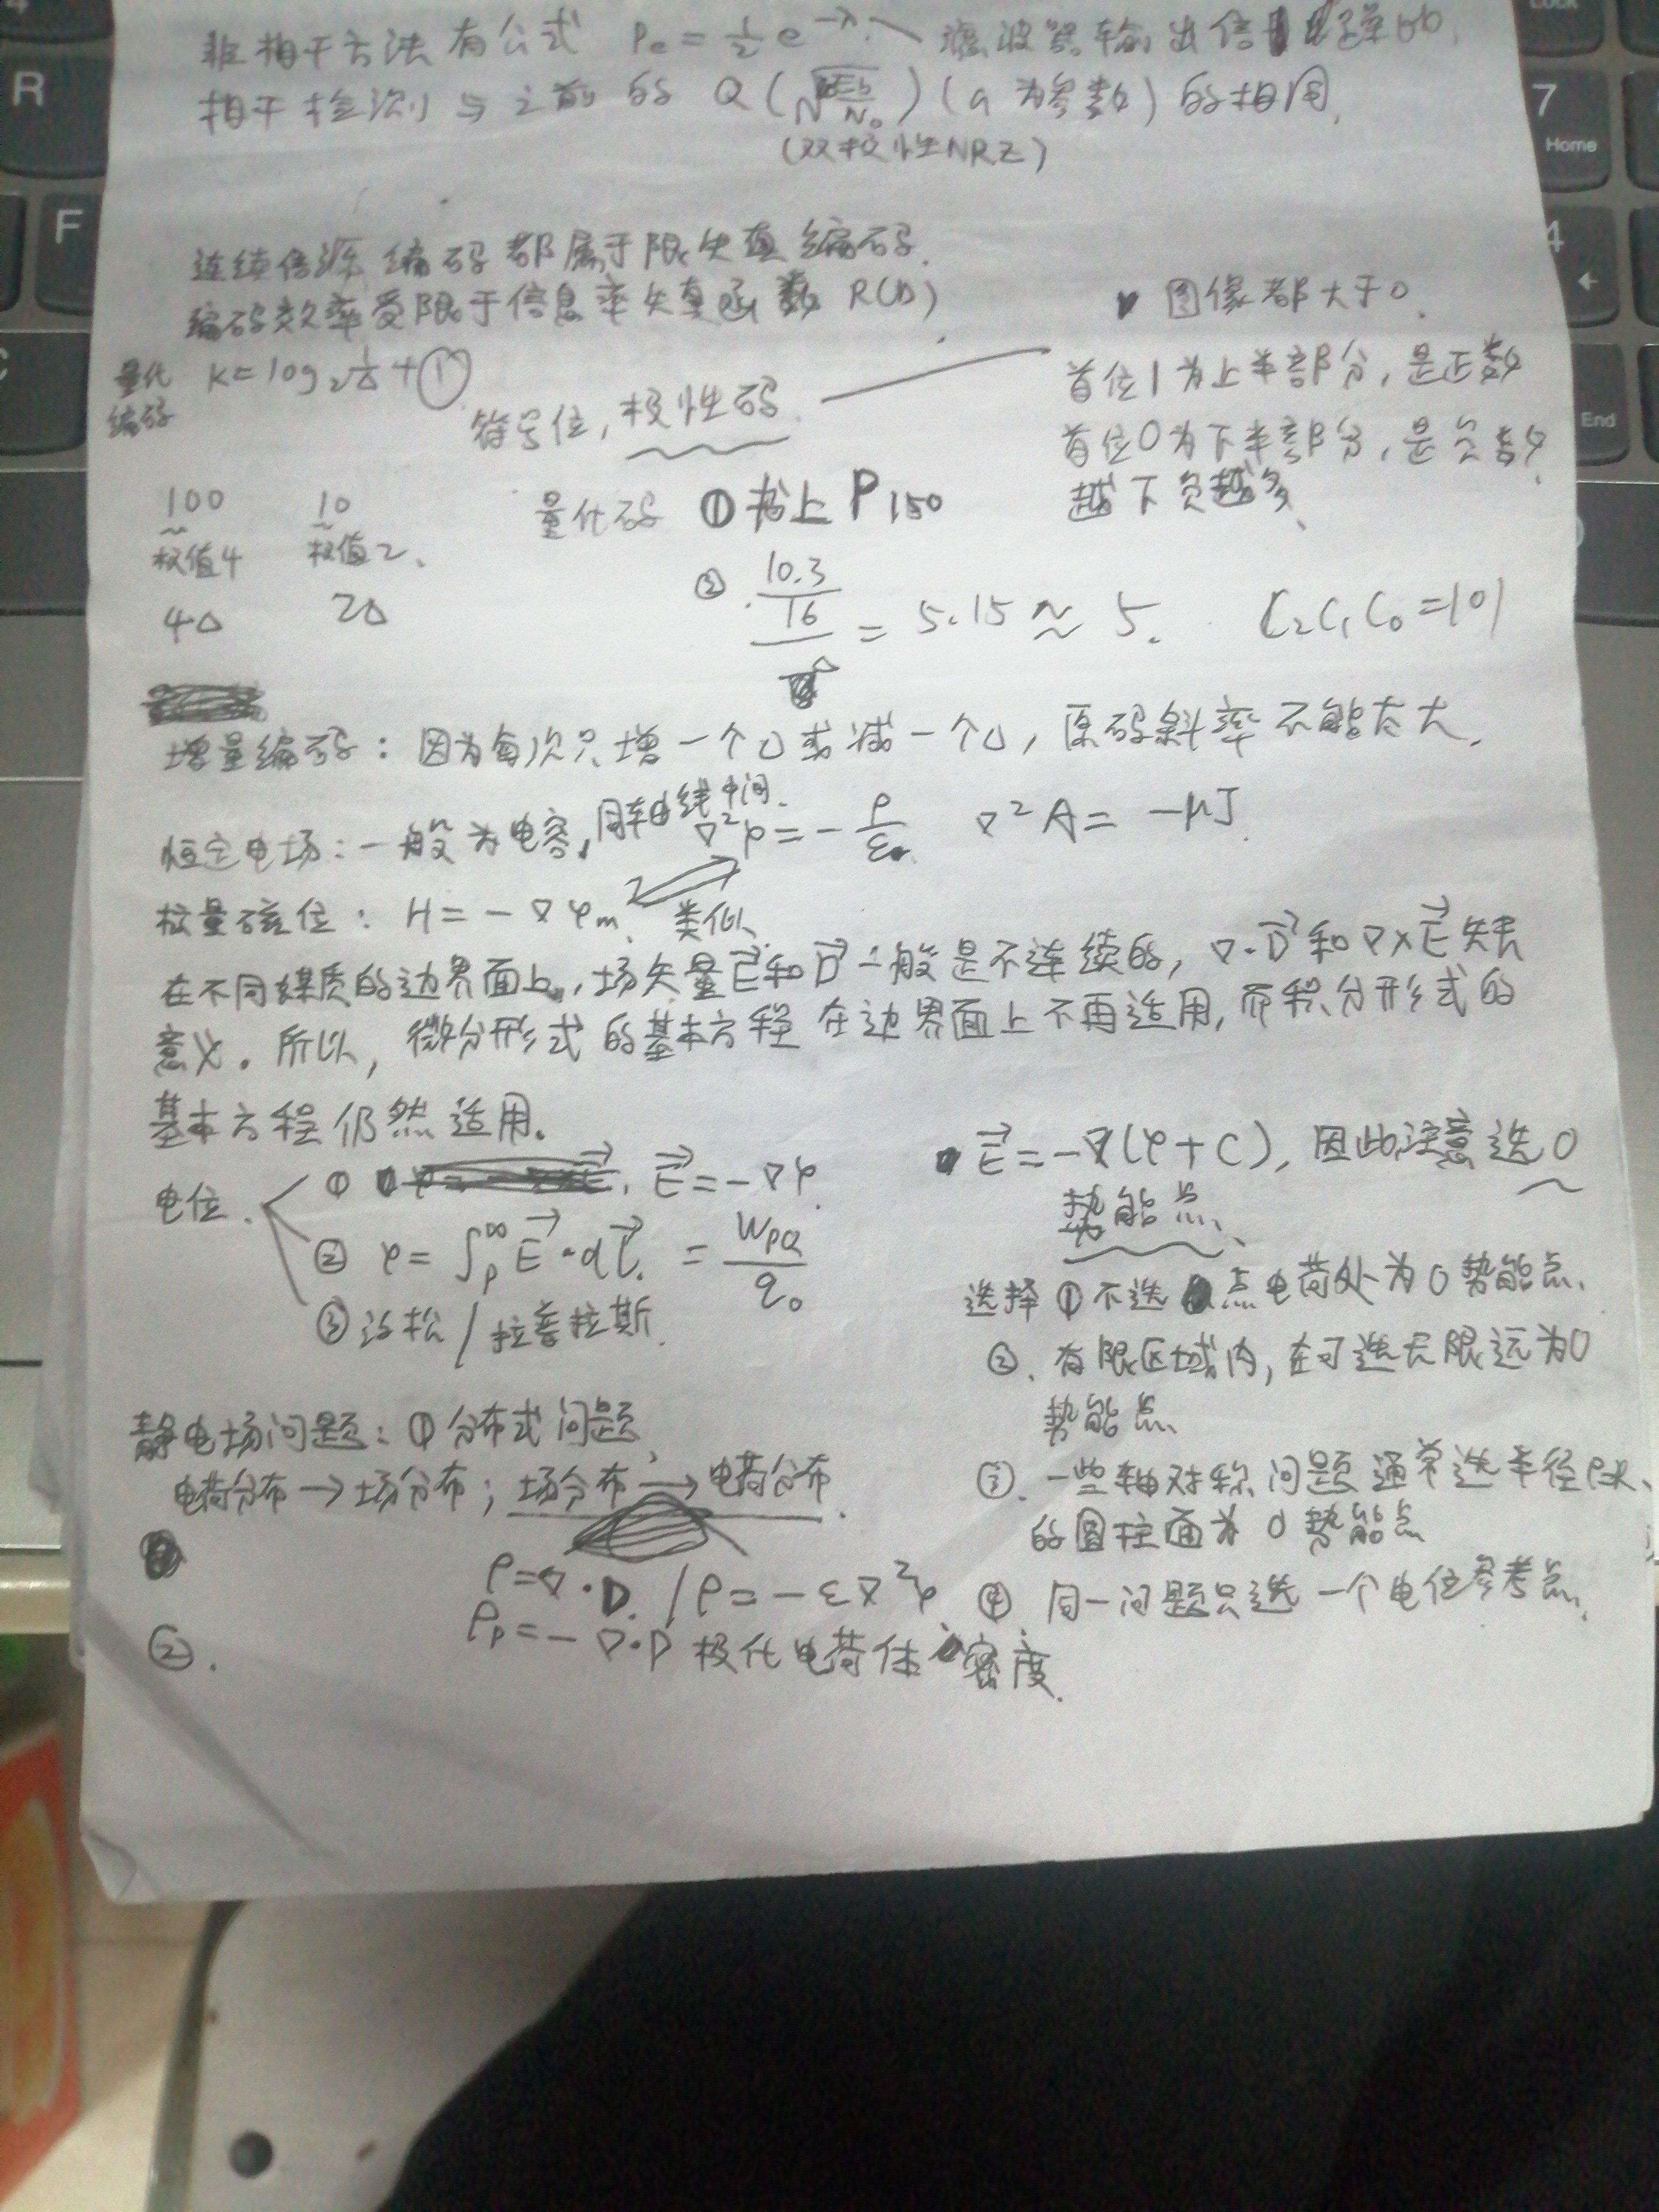 非相干方法有公式 Pe = ½ e^-λ. 滤波器输出信噪比.
相干检测与之前的 Q(√(aEb/N₀)) (a为参数) 的相同.
(双极性NRZ)
连续信源编码都属于限失真编码.
编码效率受限于信息率失真函数 R(D)
图像都大于0.
量化编码 K = log₂ 1/Δ + ①
符号位, 极性码.
首位1为上半部分, 是正数
首位0为下半部分, 是负数
越下负越多、
100 10
权值4 权值2、
4Δ 2Δ
量化码 ① 书上 P150
② 10.3/16/Δ = 5.15 ≈ 5. C₂C₁C₀=101
增量编码: 因为每次只增一个Δ或减一个Δ, 原码斜率不能太大.
恒定电场: 一般为电容, 同轴线中间. ∇²φ = -ρ/ε₀ ∇²A = -μJ
标量磁位: H = -∇φm. 类似
在不同媒质的边界面上, 场矢量E和D一般是不连续的, ∇·D和∇×E失去
意义. 所以, 微分形式的基本方程在边界面上不再适用, 而积分形式的
基本方程仍然适用.
电位.
① E = -∇φ.
② φ = ∫p^∞ E·dl. = WPQ/q₀
③ 泊松/拉普拉斯.
E = -∇(φ+C), 因此注意选0
势能点、
选择 ① 不选点电荷处为0势能点.
②. 有限区域内, 在可选无限远为0
势能点、
③. 一些轴对称问题通常选半径
的圆柱面为0势能点
④ 同一问题只选一个电位参考点.
静电场问题: ① 分布式问题
电荷分布→场分布; 场分布→电荷分布.
ρ=∇·D. / ρ = -ε∇²φ
ρp = -∇·P 极化电荷体密度.
②.
R
F
C
7
Home
4
End
Lock